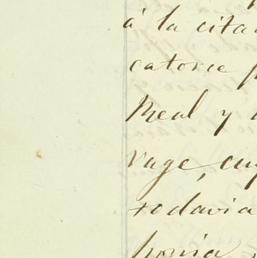 á la cita
catorce p
Real y
vage, cuy
todavia